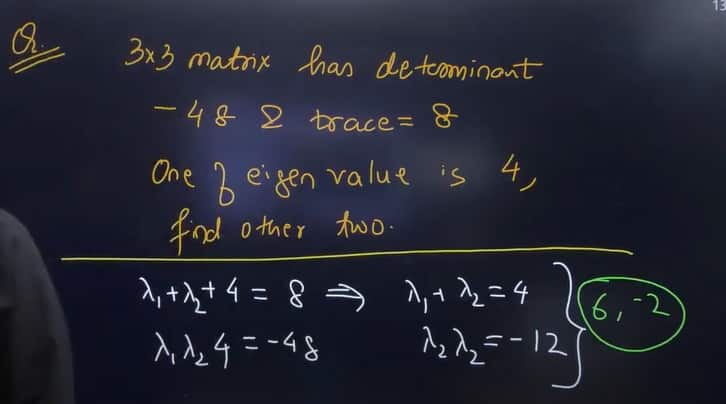 13
Q.
3x3 matrix has determinant
-48 & trace = 8
One of eigen value is 4,
find other two.
λ₁+λ₂+4 = 8 ⇒ λ₁+λ₂=4
λ₁λ₂4=-48 λ₂λ₂=-12 } 6,-2